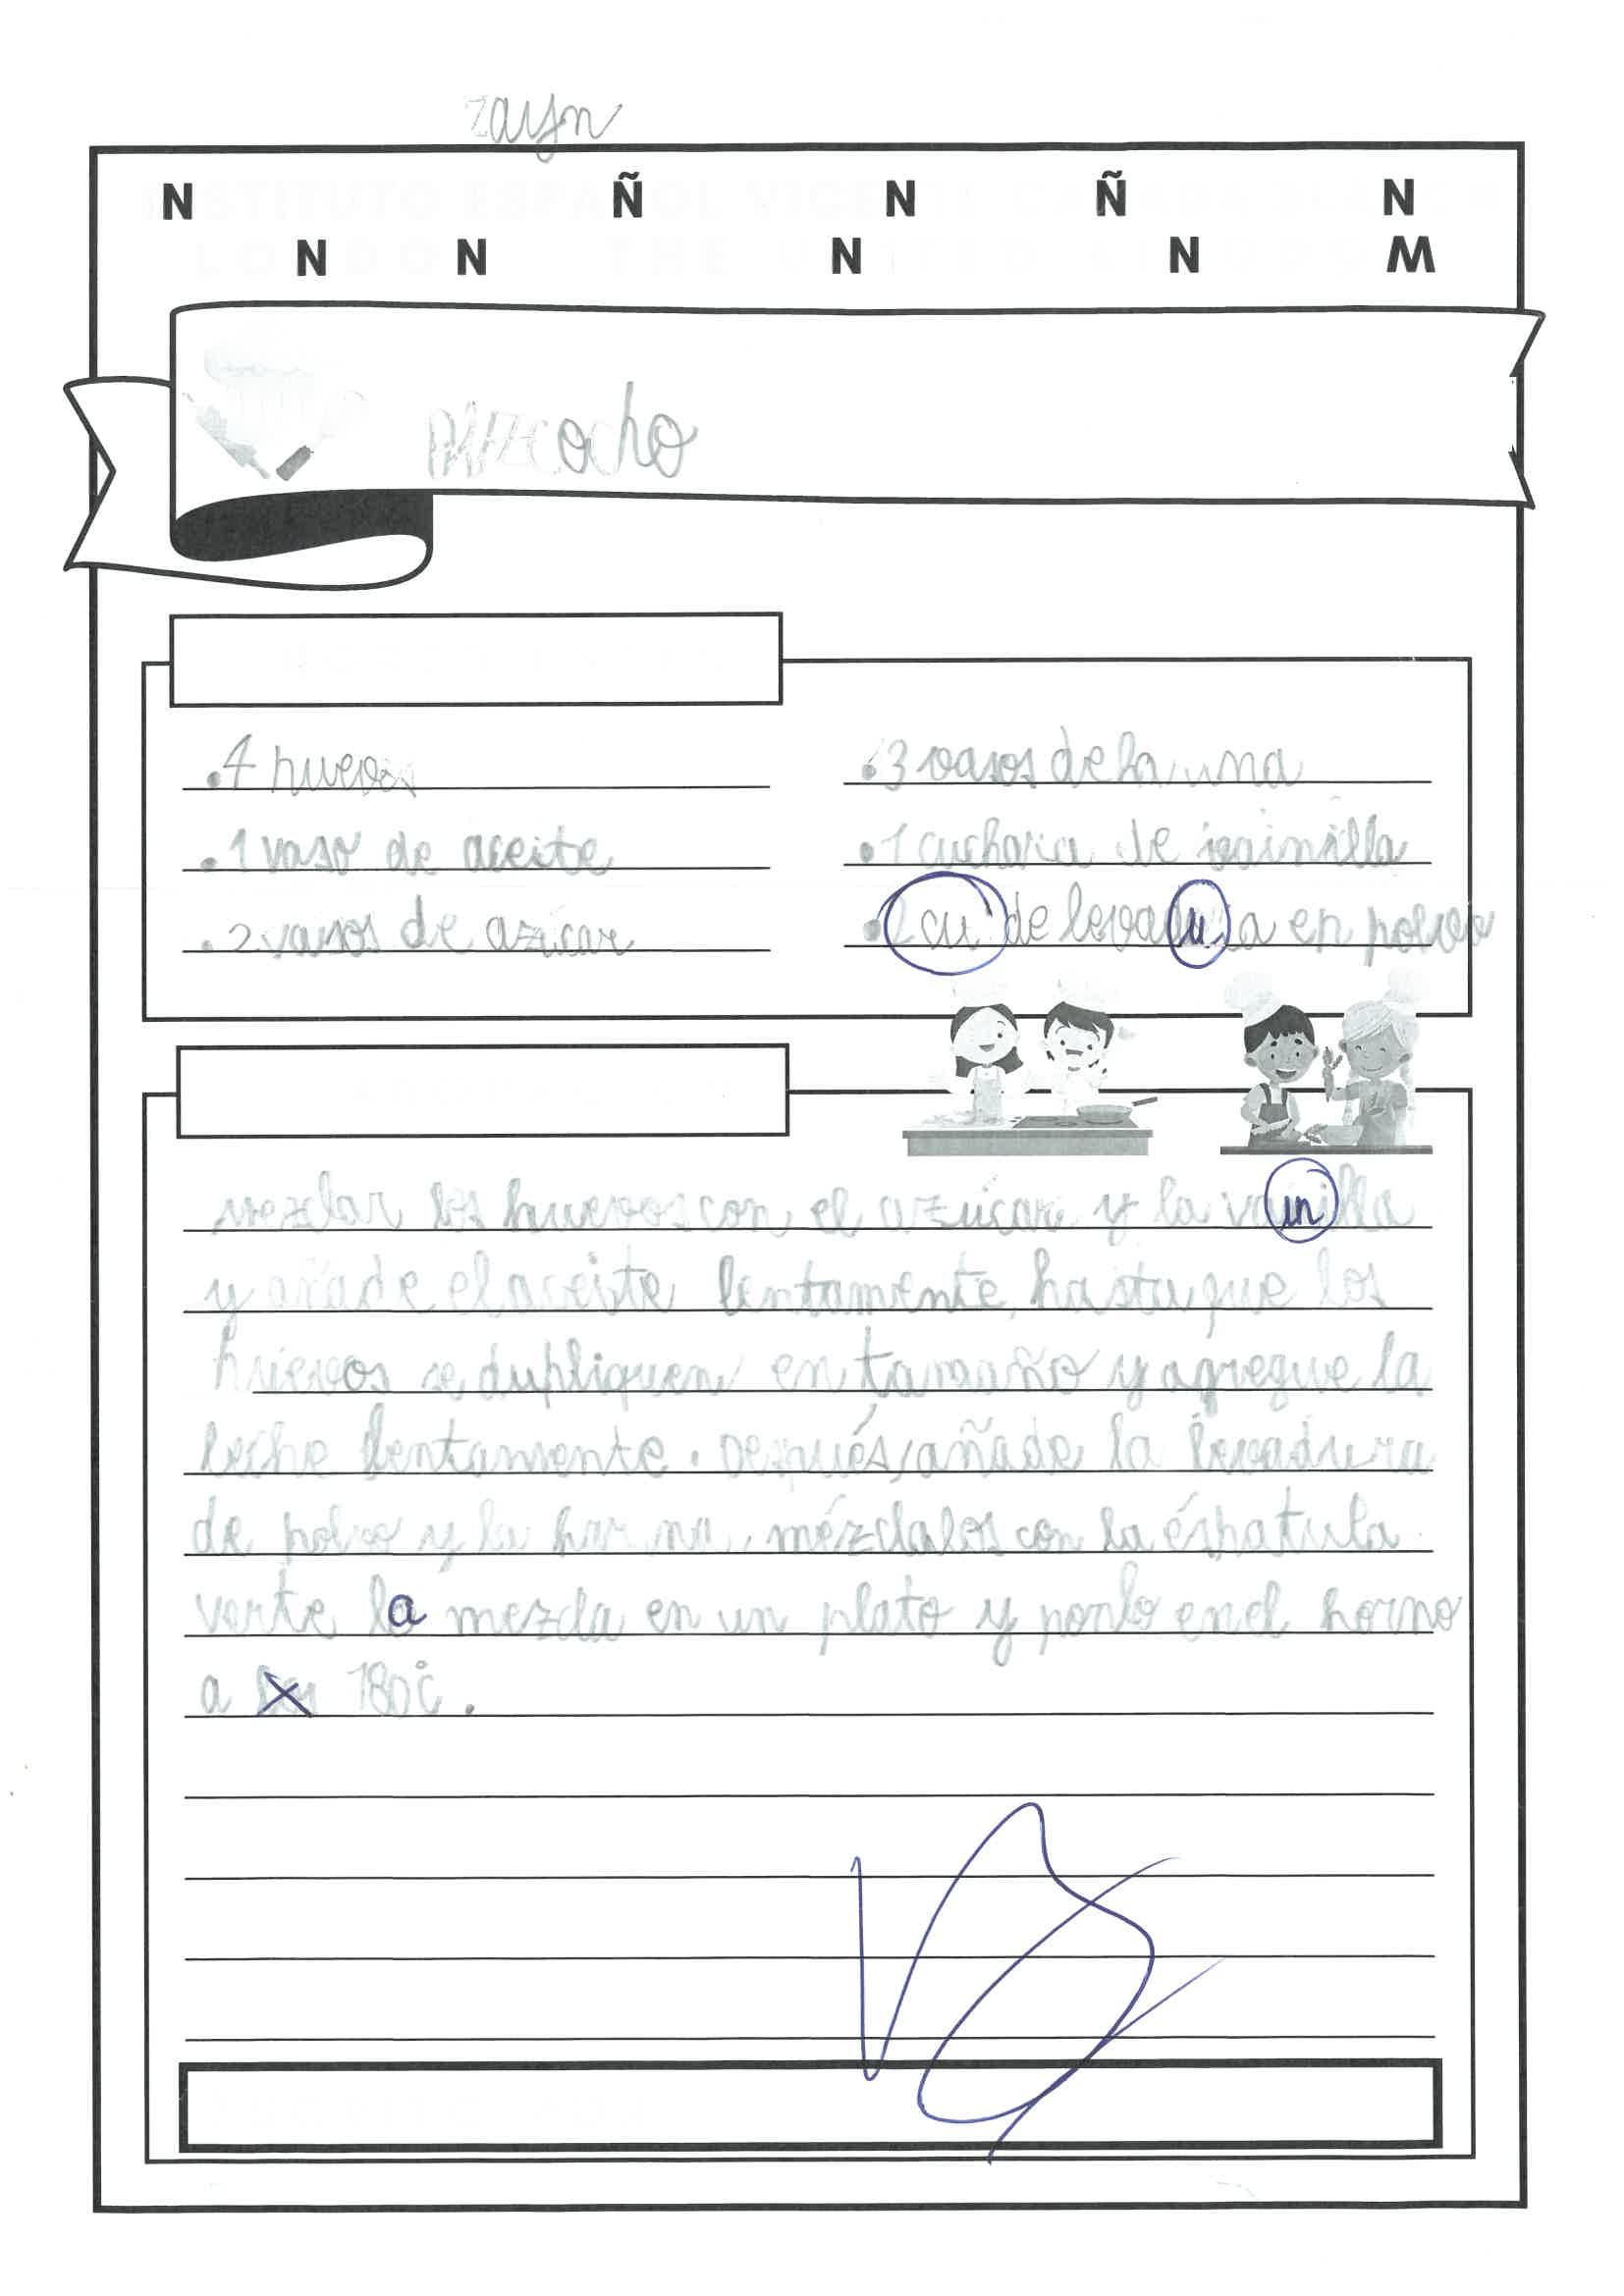 zayn
N Ñ N Ñ N
N N N N M
Bizcocho
• 4 huevos
• 1 vaso de aceite
• 2 vasos de azúcar
• 3 vasos de harina
• 1 cuchara de vainilla
• 2 cu de levadura en polvo
mezclar los huevos con el azúcar y la vainilla
y añade el aceite lentamente, hasta que los
huevos se dupliquen en tamaño y agregue la
leche lentamente. Después, añade la levadura
de polvo y la harina. mézclalos con la éspatula
verte la mezcla en un plato y ponlo en el horno
a 180°c.